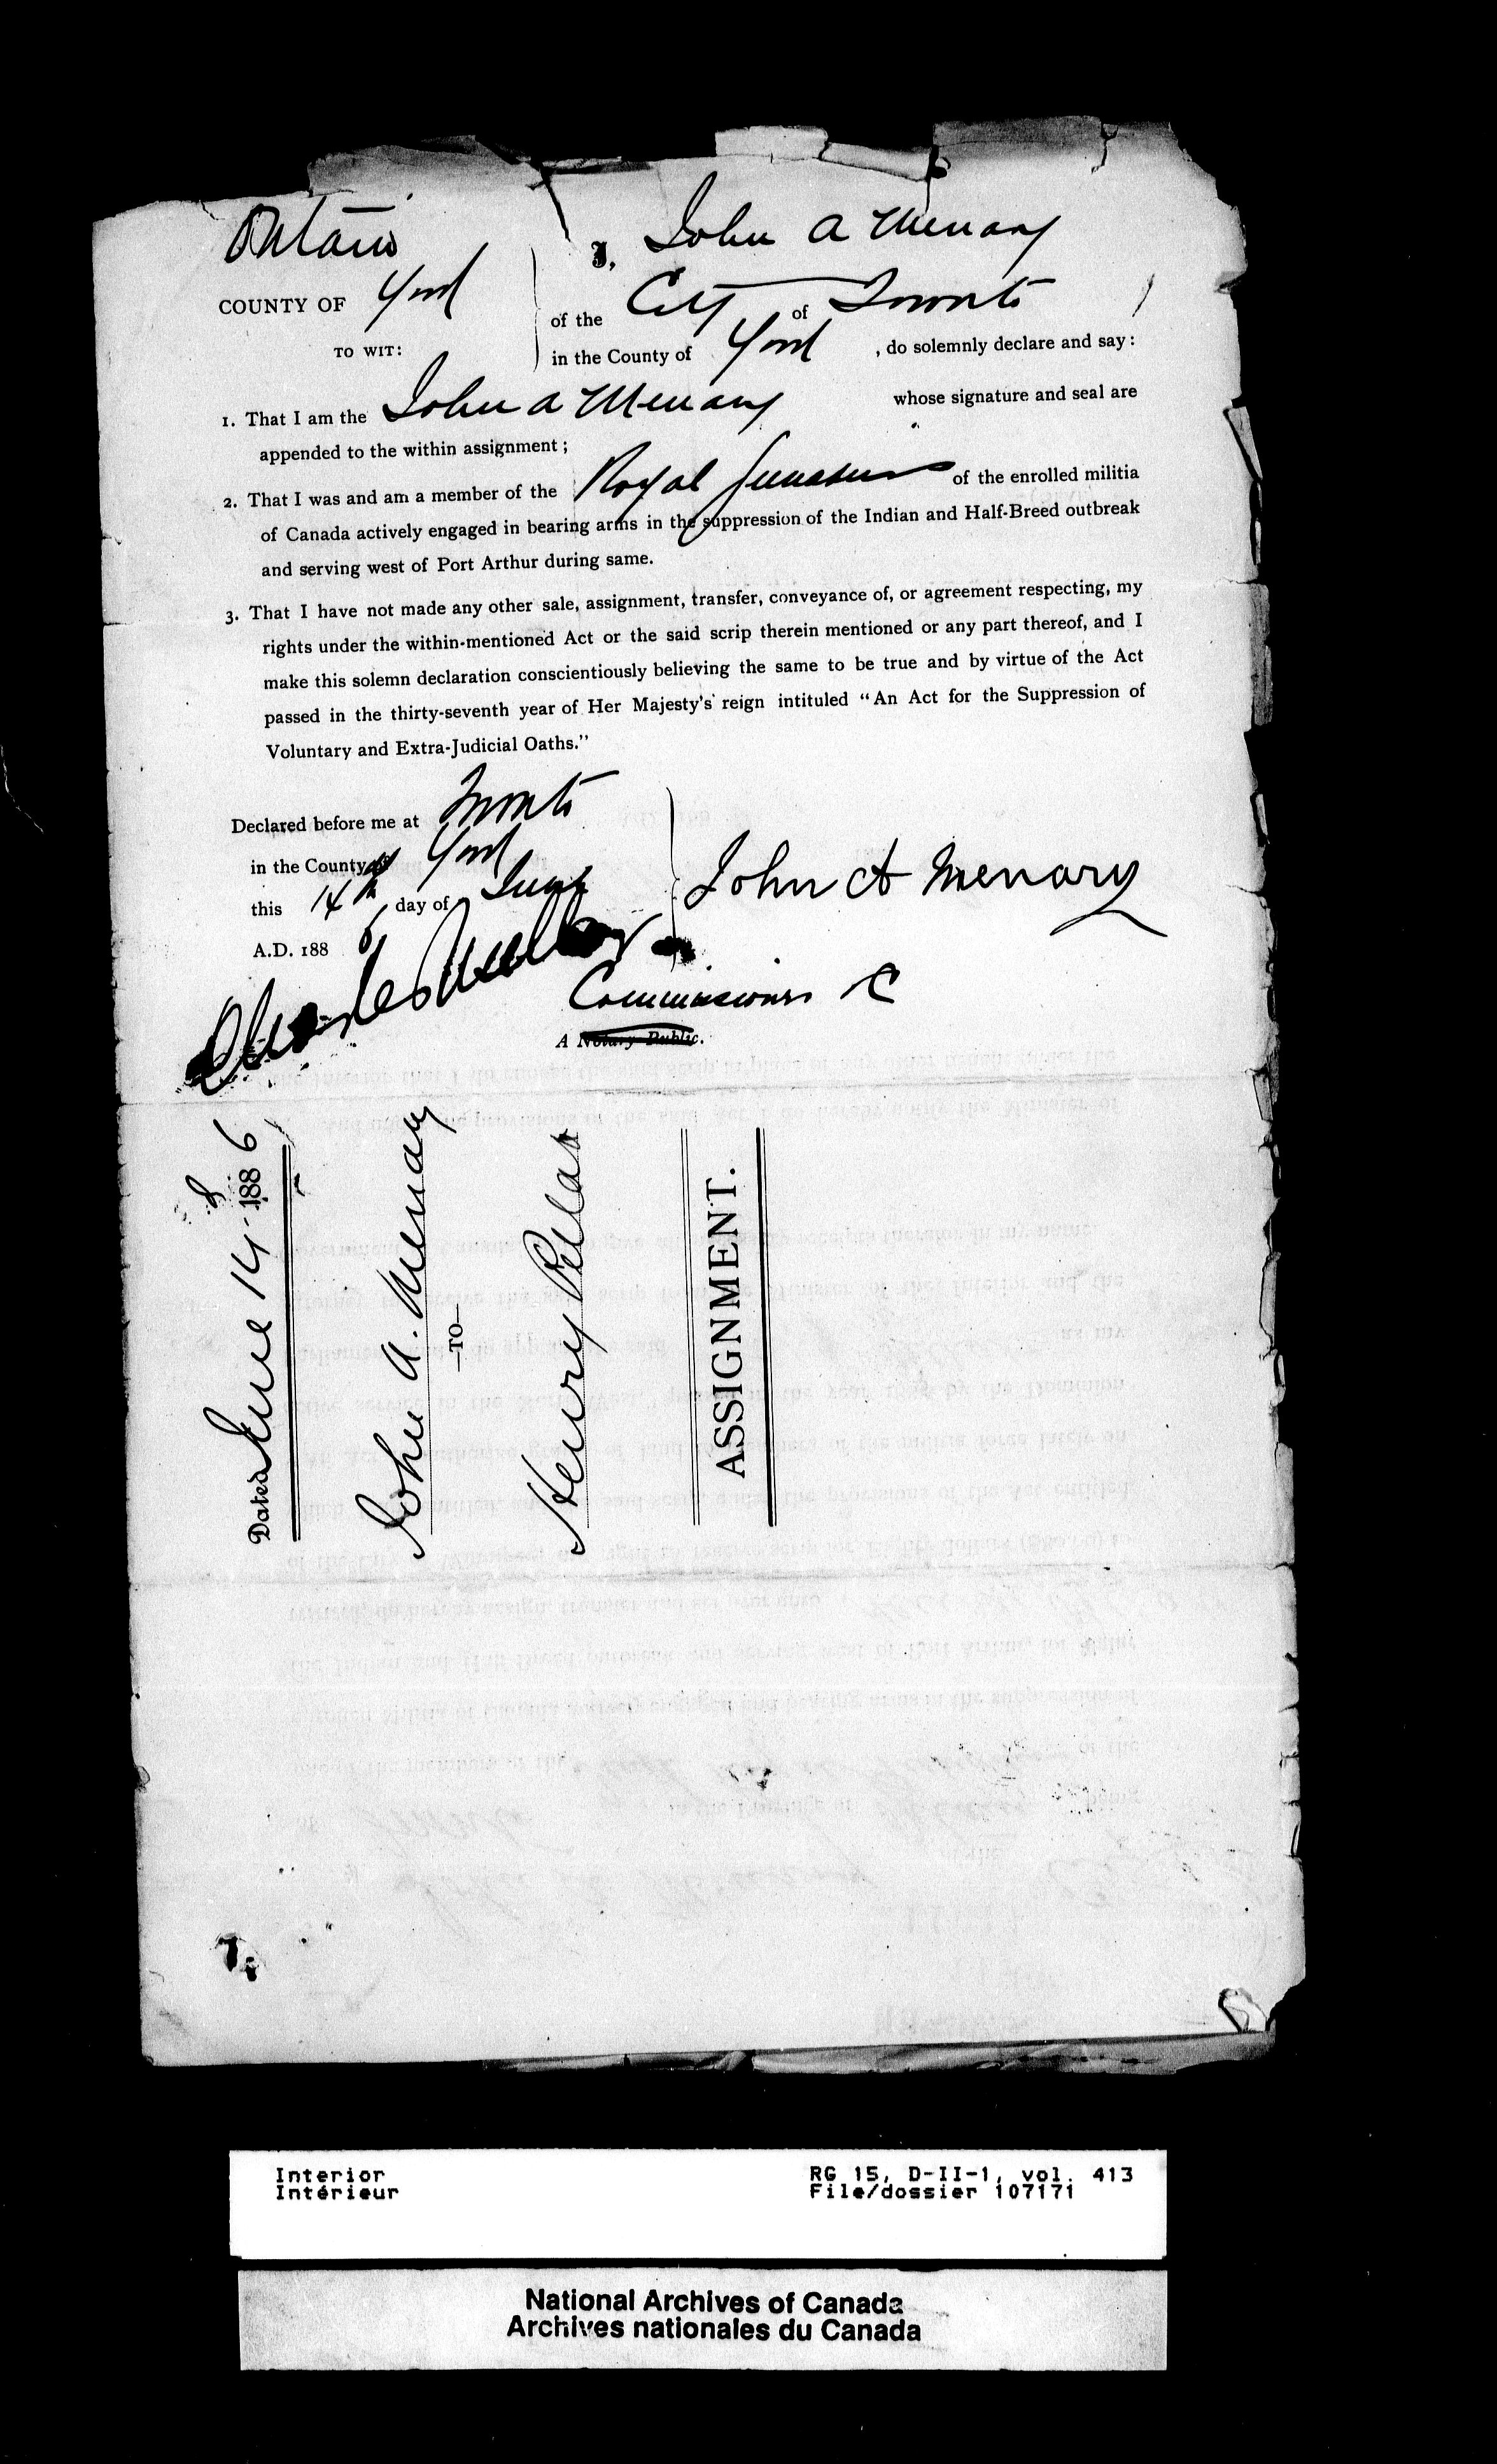 Ontario
COUNTY OF York
TO WIT:
I, John A Menary
of the City of Toronto
in the County of York , do solemnly declare and say:
1. That I am the John A Menary whose signature and seal are
appended to the within assignment;
2. That I was and am a member of the Royal Grenadiers of the enrolled militia
of Canada actively engaged in bearing arms in the suppression of the Indian and Half-Breed outbreak
and serving west of Port Arthur during same.
3. That I have not made any other sale, assignment, transfer, conveyance of, or agreement respecting, my
rights under the within-mentioned Act or the said scrip therein mentioned or any part thereof, and I
make this solemn declaration conscientiously believing the same to be true and by virtue of the Act
passed in the thirty-seventh year of Her Majesty's reign intituled "An Act for the Suppression of
Voluntary and Extra-Judicial Oaths."
Declared before me at Toronto
in the County of York
this 14th day of June
A.D. 1886
John A Menary
Charles
Commissioner
A Notary Public.
Dated June 14 1886
John A. Menary
—TO—
Henry Pellatt
ASSIGNMENT.
Interior
Intérieur
RG 15, D-II-1, vol. 413
File/dossier 107171
National Archives of Canada
Archives nationales du Canada